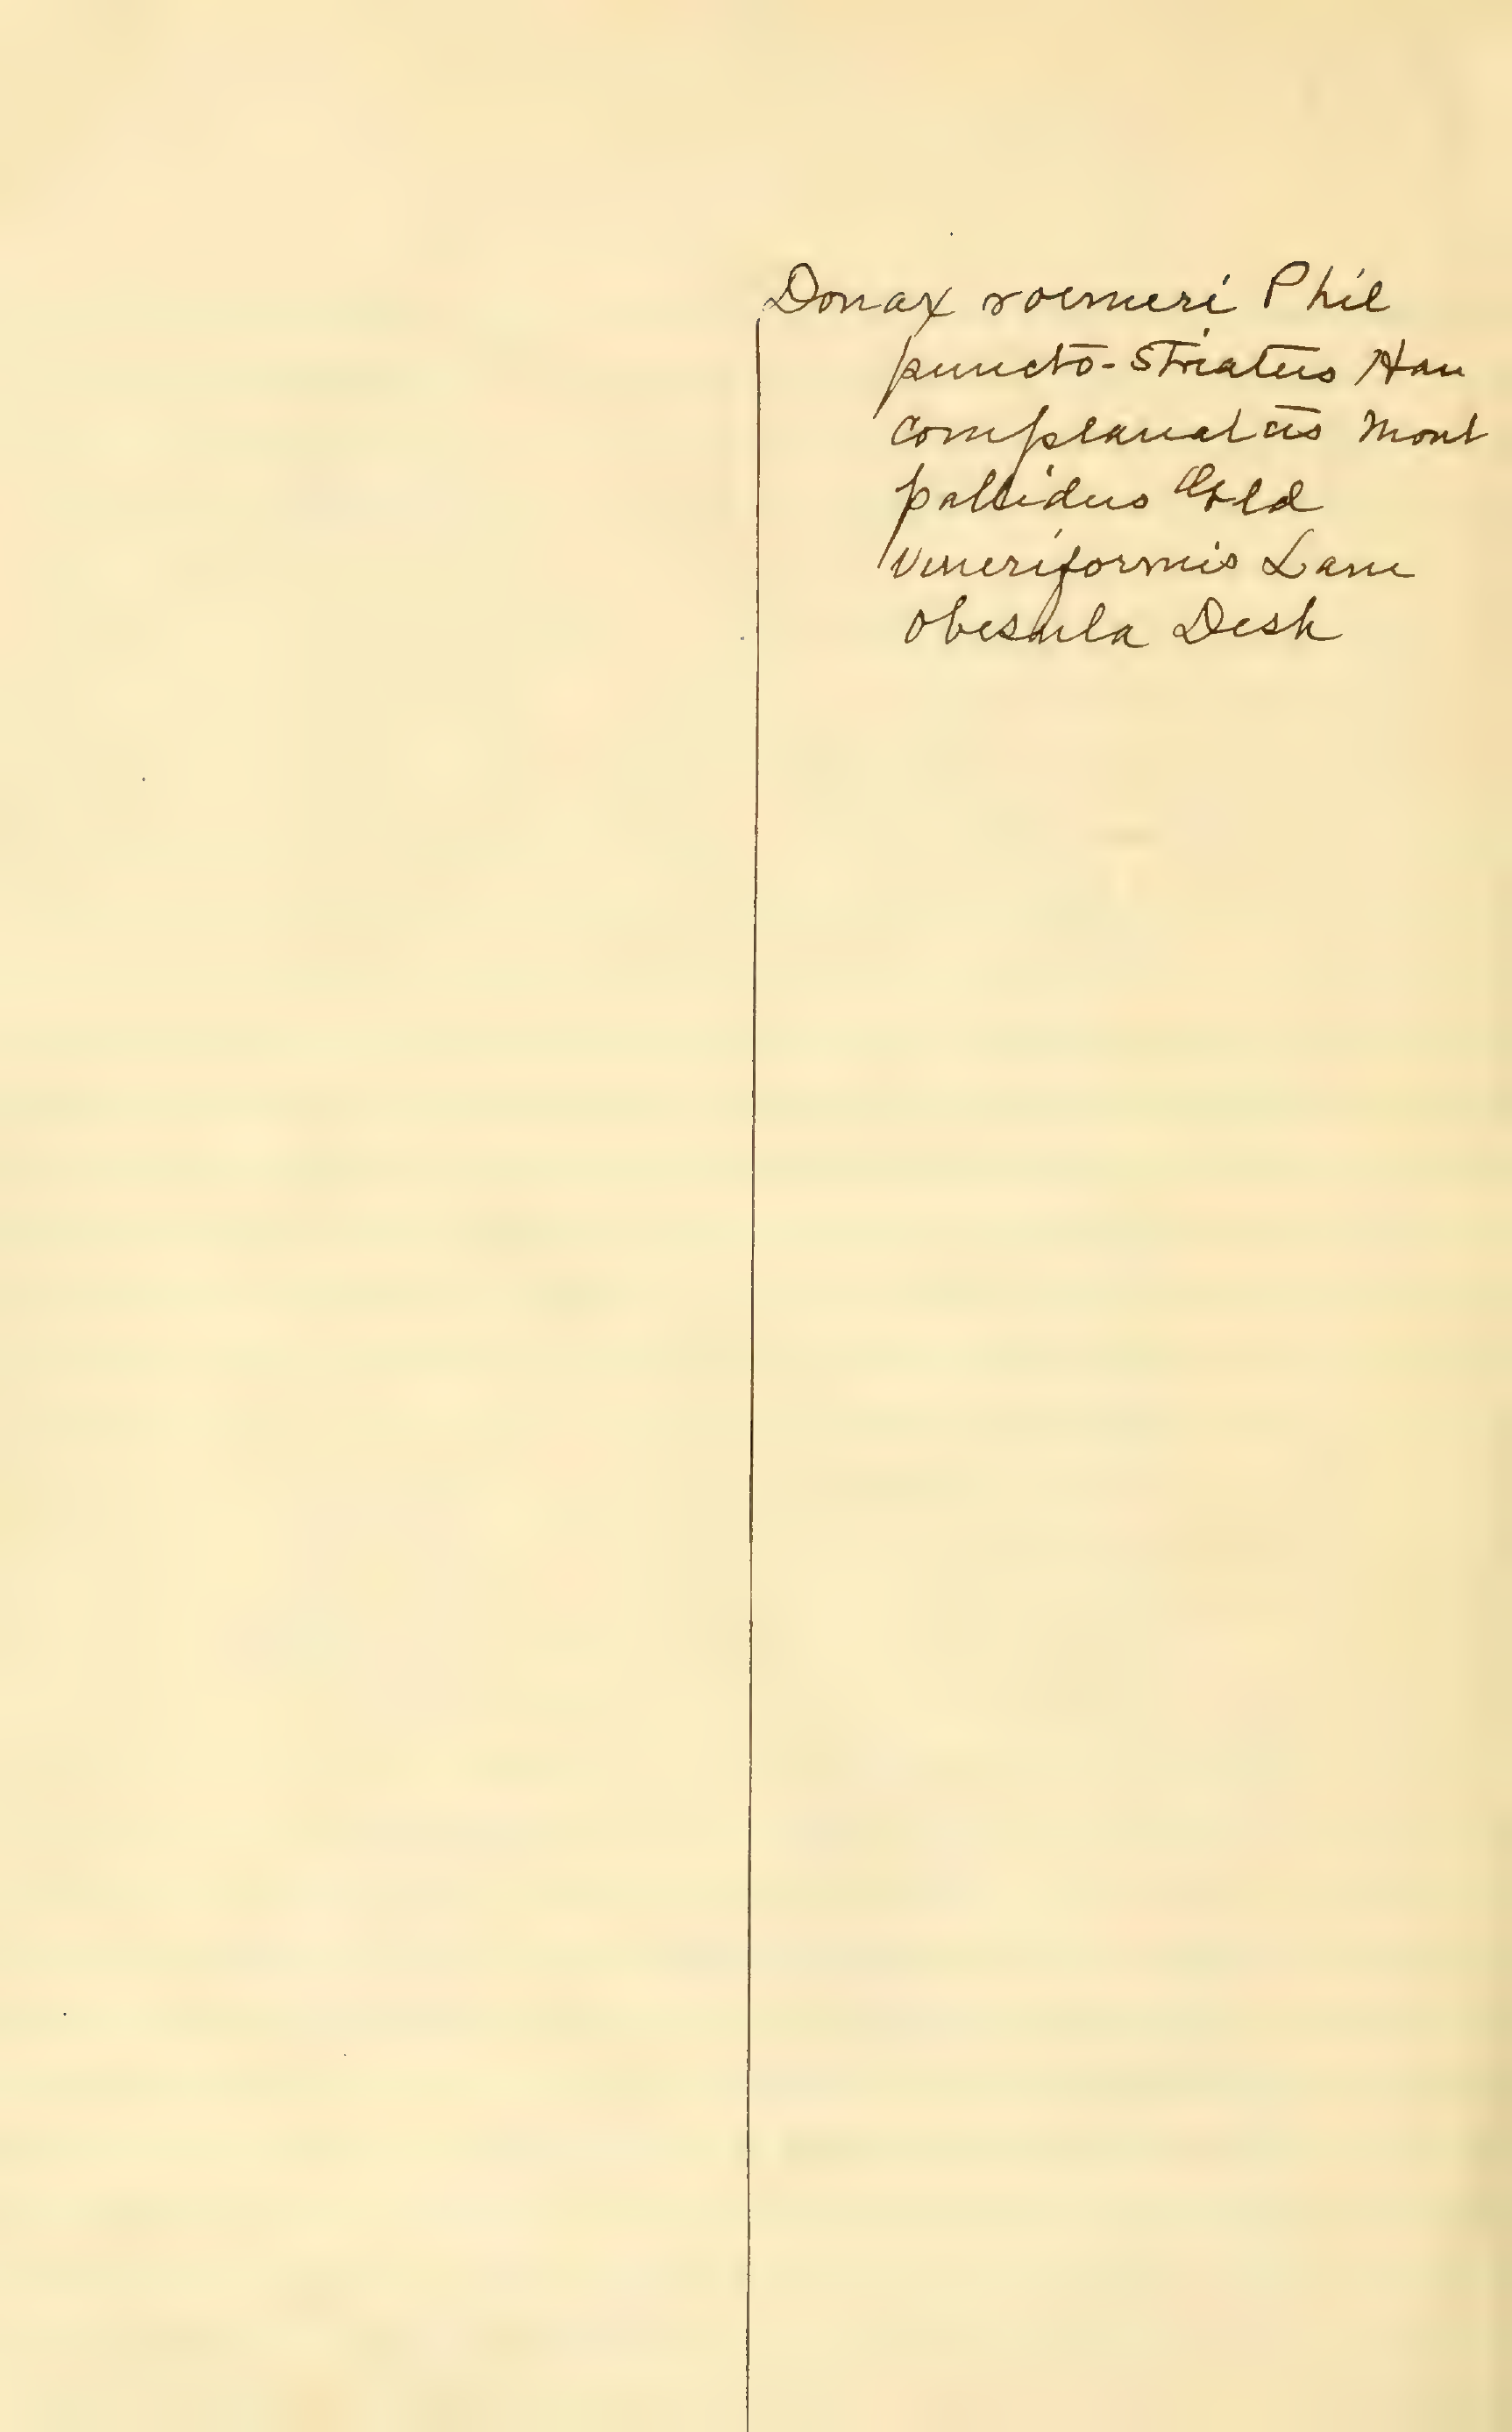 Donax roemeri Phil
puncto-striatus Han
complanatus Mont
pallidus
veneriformis Lam
obesula Desh